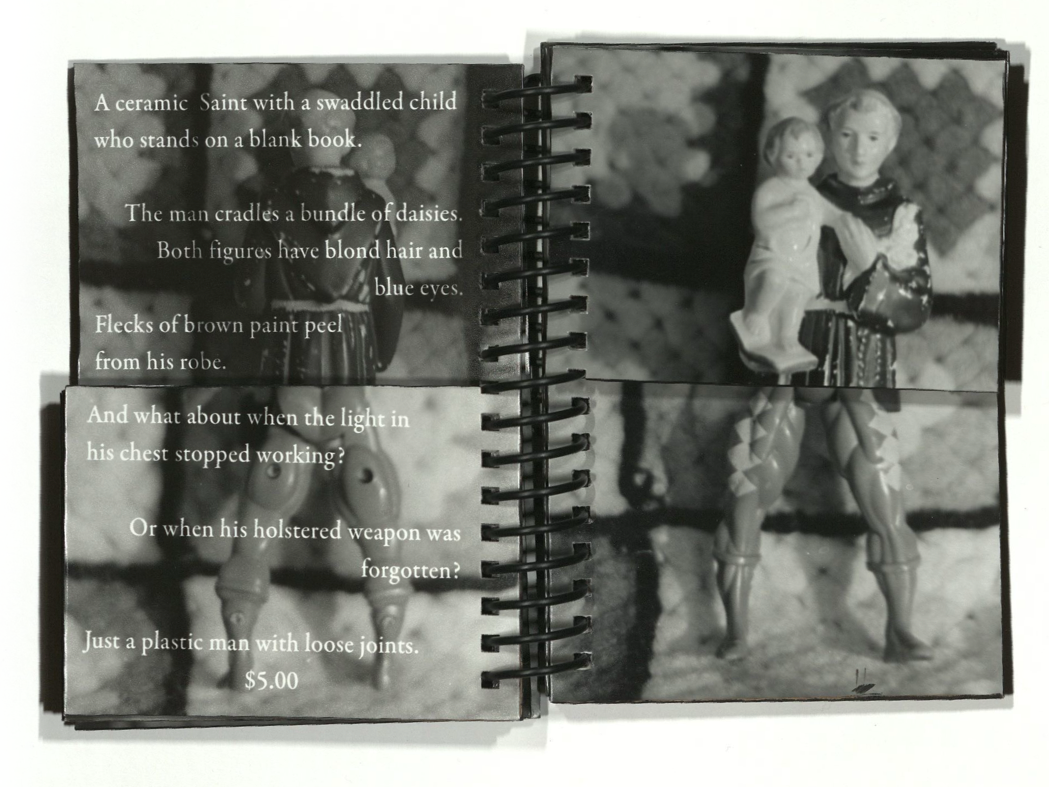 A ceramic Saint with a swaddled child
who stands on a blank book.
The man cradles a bundle of daisies.
Both figures have blond hair and
blue eyes.
Flecks of brown paint peel
from his robe.
And what about when the light in
his chest stopped working?
Or when his holstered weapon was
forgotten?
Just a plastic man with loose joints.
$5.00